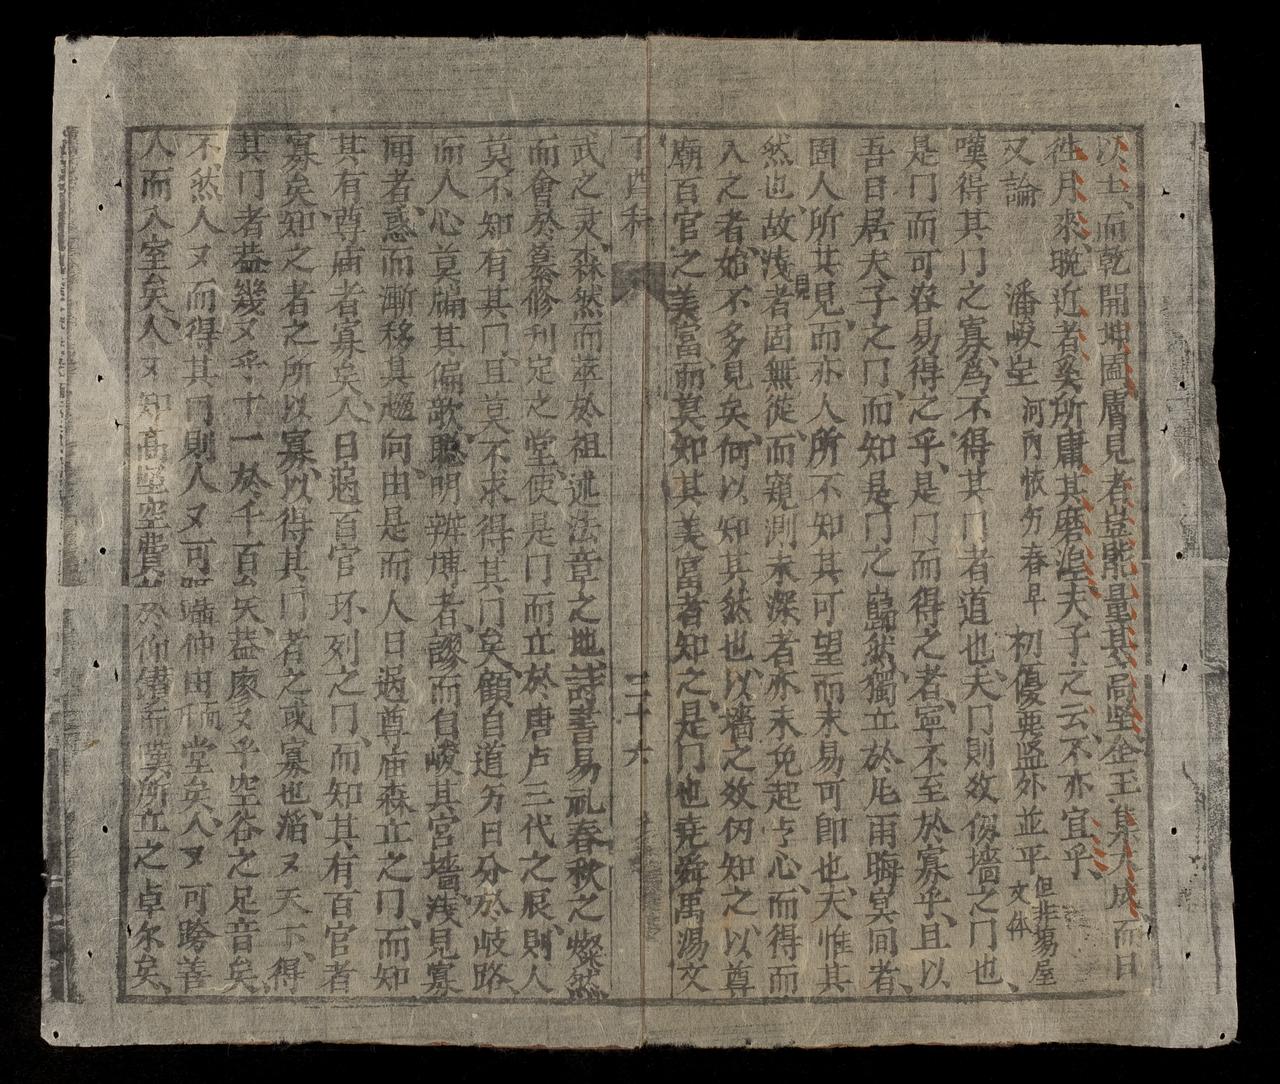 次士、而乾開坤圖膚見者豈能量其高堅金玉集大成、而日
徃月來、晩近者奚所庸其磨涅夫子之云、不亦宜乎、
又論 潘峻 河内 春早 初優要 外並平 但非場屋文体
嘆得其門之寡、為不得其門者道也、夫門則數仞墻之門也、
是門而可容易得之乎、是門而得之者、寧不至於寡乎、且以
吾日居夫子之門、而知是門之巋然、獨立於風雨晦冥间者、
固人所其見、而亦人所不知、其可望而未易可即也、夫惟其
然也、故淺見者固無從、而窺測未深者亦未免起 心、而得而
入之者、始不多見矣、何以知其然也、以墻之數仞知之、以尊
廟百官之美富、而莫知其美富者知之、是門也堯舜禹湯文
丁酉科 二十六
武之灵、森然而萃於祖述法章之地詩書易礼春秋之燦然
而會於纂修刊定之堂、使是門而立於唐卢三代之辰、則人
莫不知有其门、且莫不求得其门矣、顧自道分日分於岐路
而人心莫牖其偏歆、聰明辨博者、謬而自峻其宮墻、淺見寡
闻者、惑而漸移其趨向、由是而人日遐尊庙森立之门、而知
其有尊庙者寡矣、人日遐百官环列之门、而知其有百官者
寡矣、知之者之所以寡、以得其门者之或寡也、滔又天下、得
其门者葢幾又乎十一於千百矣、葢廖又乎空谷之足音矣、
不然人又而得其门則人又可 仲由 堂矣、人又可跨善
人而入室矣、人又知高堅空費於仰 而漢所立之卓尔矣、